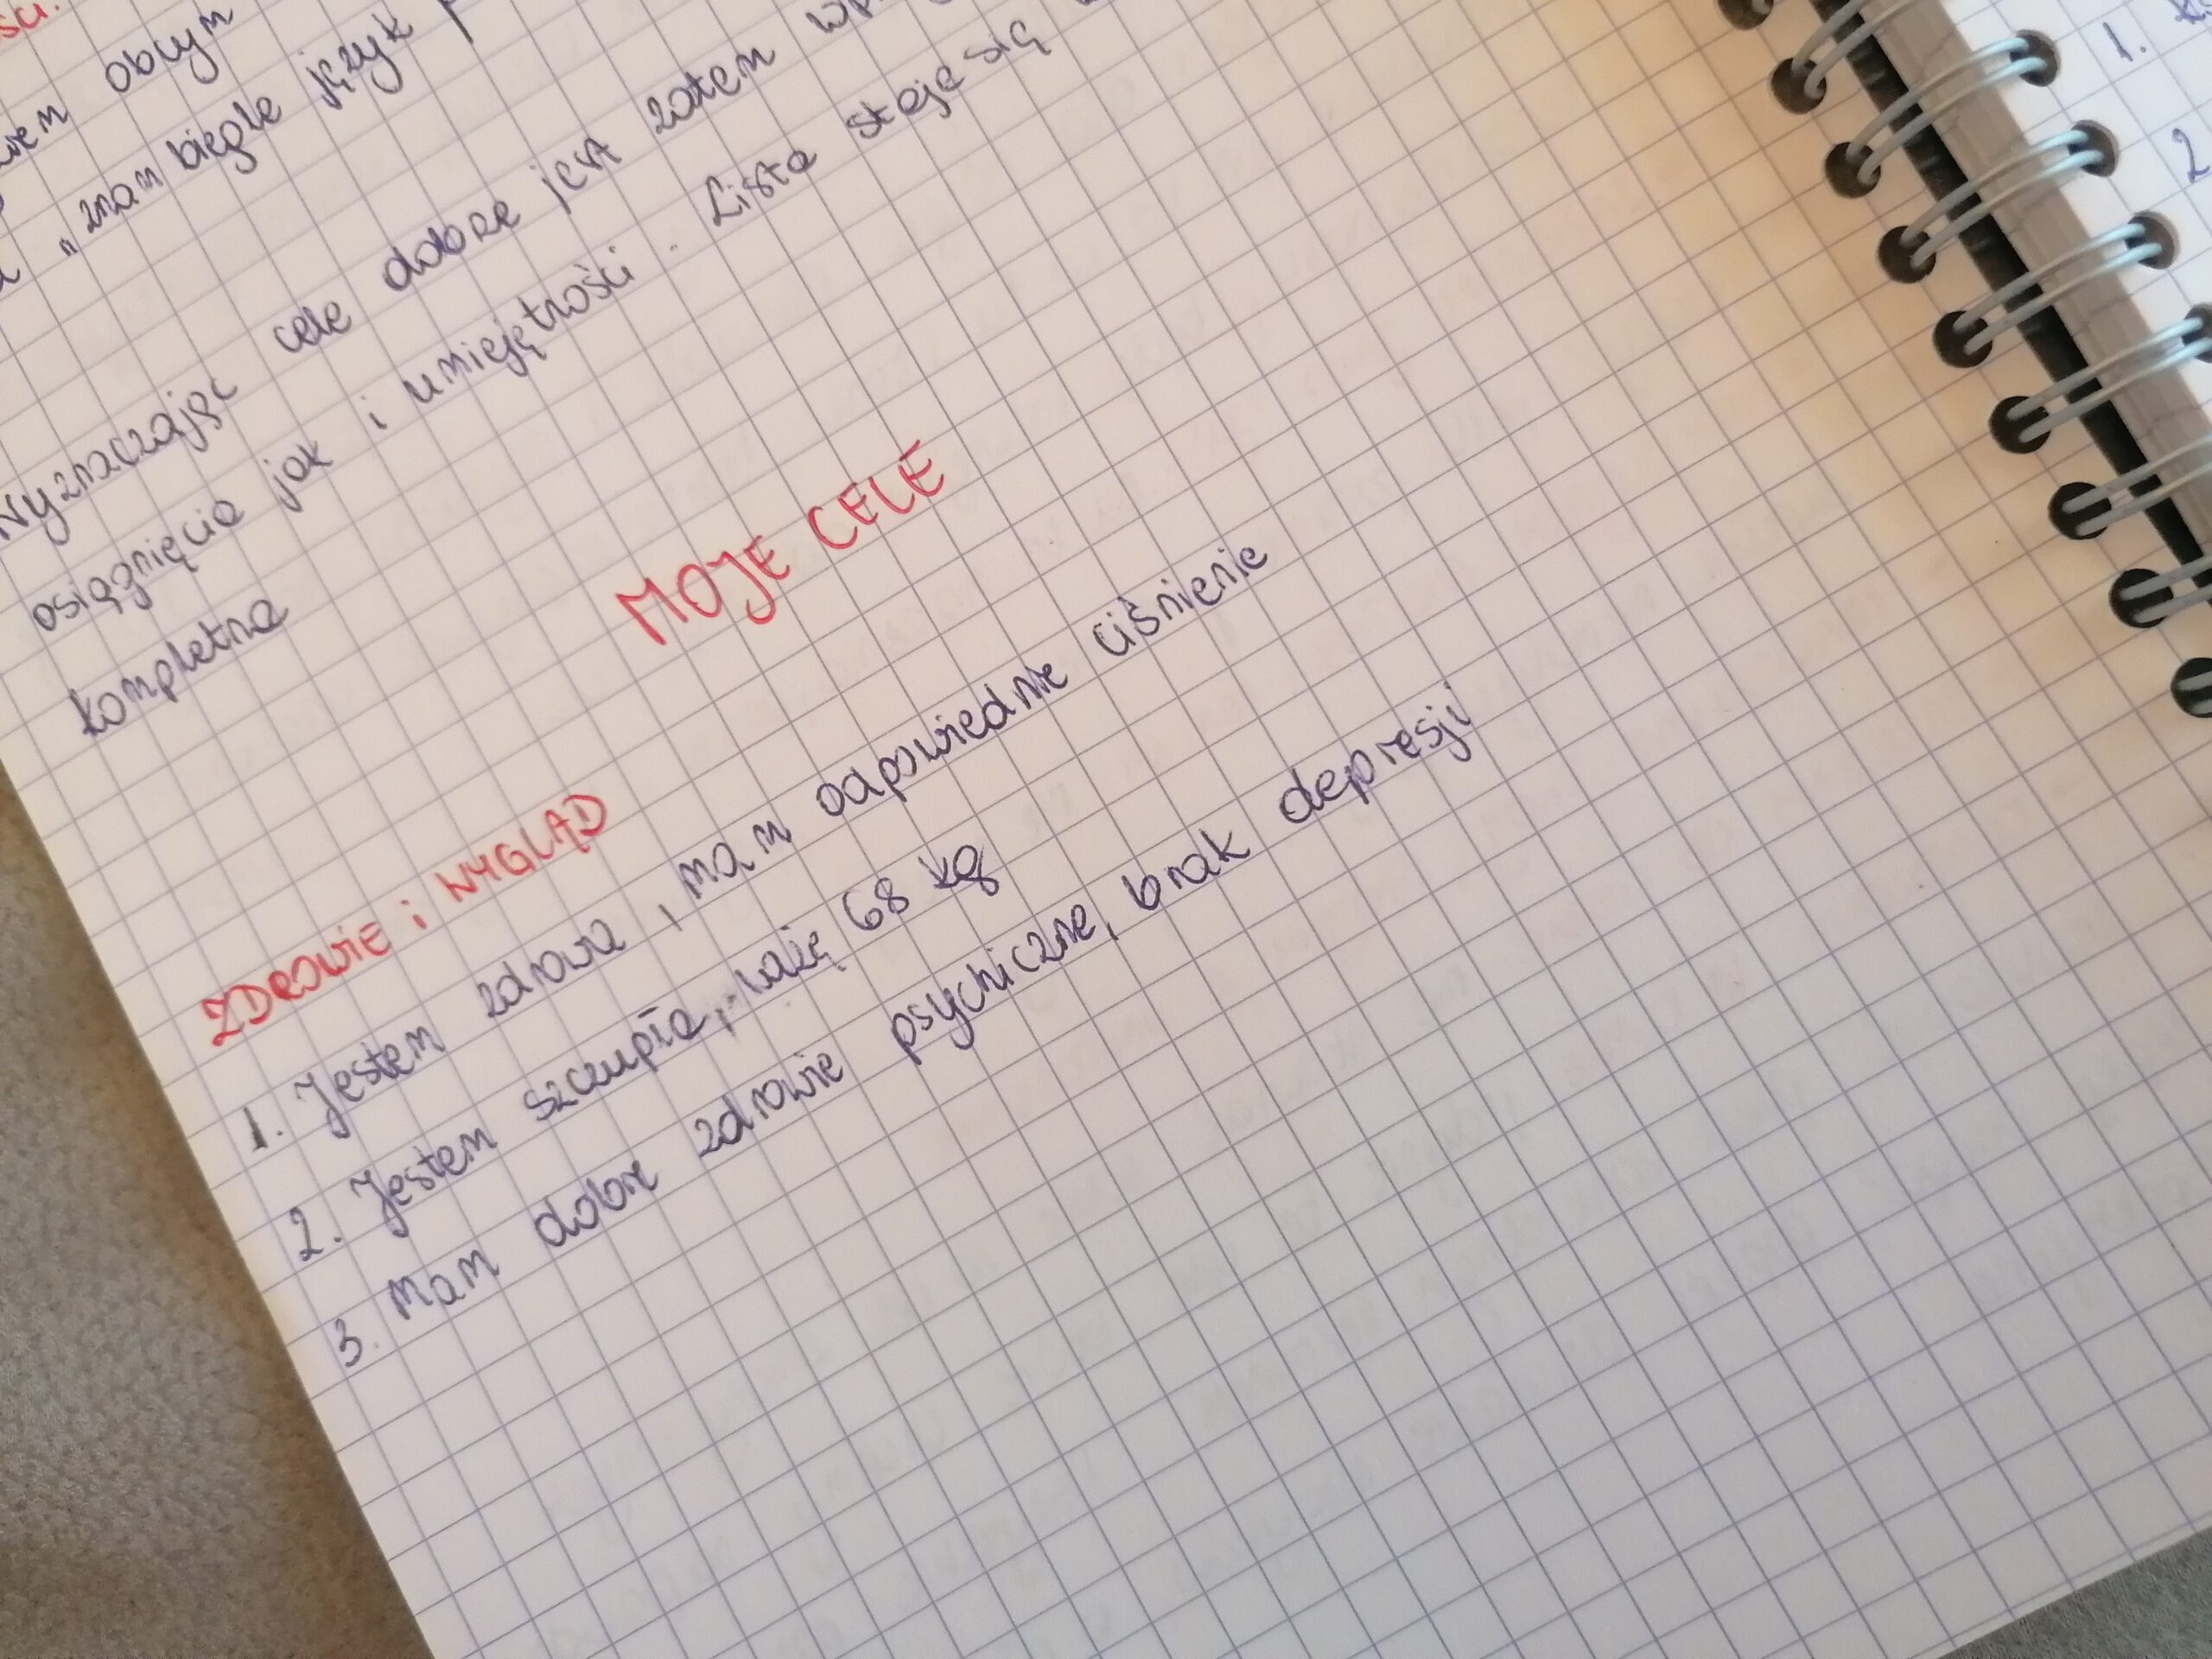 obcym
„znam biegle język
Wyznaczając cele dobrze jest zatem
osiągnięcia jak i umiejętności. Lista staje się
kompletna
MOJE CELE
ZDROWIE i WYGLĄD
1. Jestem zdrowa, mam odpowiednie ciśnienie
2. Jestem szczupła, ważę 68 kg
3. Mam dobre zdrowie psychiczne, brak depresji
1.
2